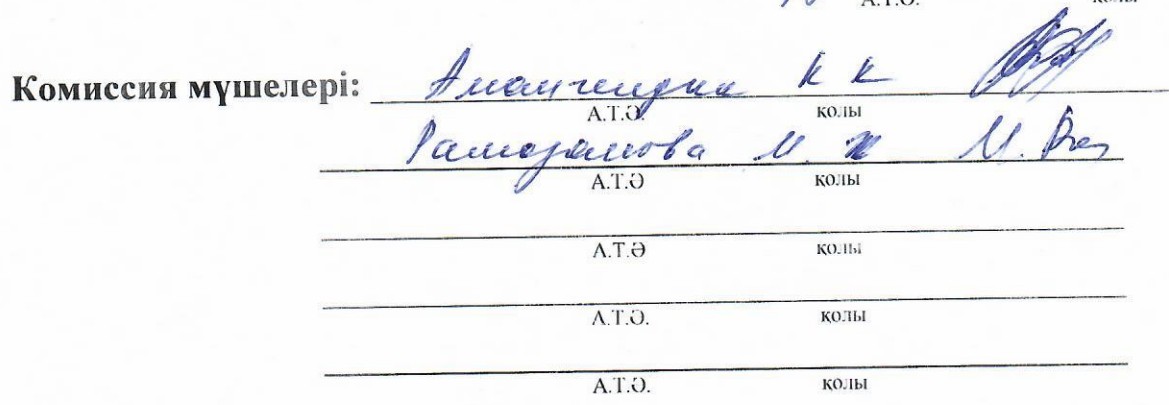 А.Т.Ә. қолы
Комиссия мүшелері: К К
А.Т.Ә. қолы
Рамазанова М. Ж
А.Т.Ә қолы
А.Т.Ә қолы
А.Т.Ә. қолы
А.Т.Ә. қолы